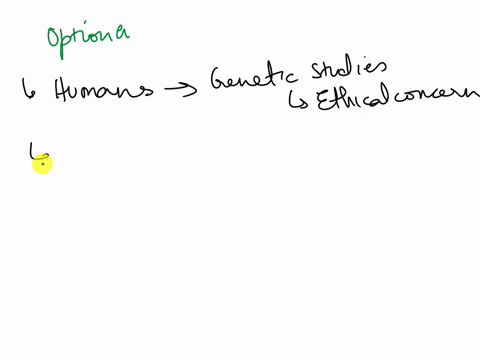 Option a
↳ Humans → Genetic studies
↳ Ethical concern
↳